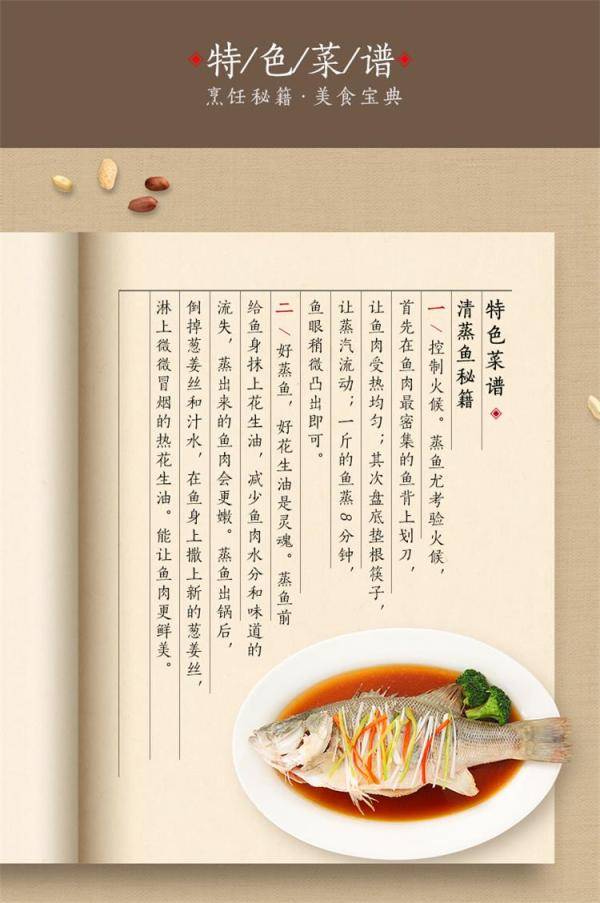 特/色/菜/谱
烹饪秘籍·美食宝典
特色菜谱
清蒸鱼秘籍
一\控制火候。蒸鱼尤考验火候，
首先在鱼肉最密集的鱼背上划刀，
让鱼肉受热均匀；其次盘底垫根筷子，
让蒸汽流动；一斤的鱼蒸8分钟，
鱼眼稍微凸出即可。
二\好蒸鱼，好花生油是灵魂。蒸鱼前
给鱼身抹上花生油，减少鱼肉水分和味道的
流失，蒸出来的鱼肉会更嫩。蒸鱼出锅后，
倒掉葱姜丝和汁水，在鱼身上撒上新的葱姜丝，
淋上微微冒烟的热花生油。能让鱼肉更鲜美。